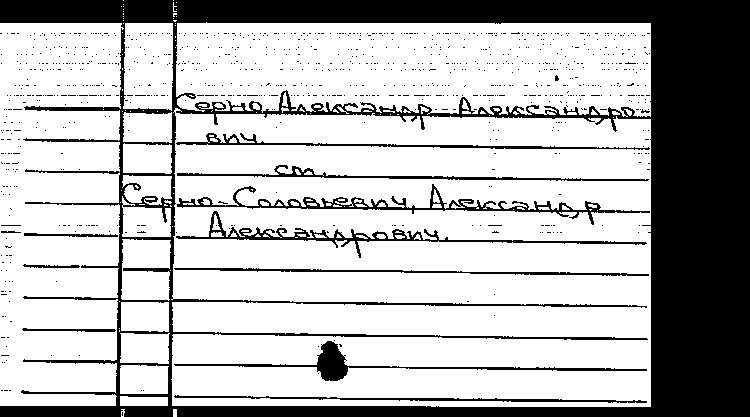 Серно, Александр Александро-
вич.
см.
Серно-Соловьевич, Александр
Александрович.